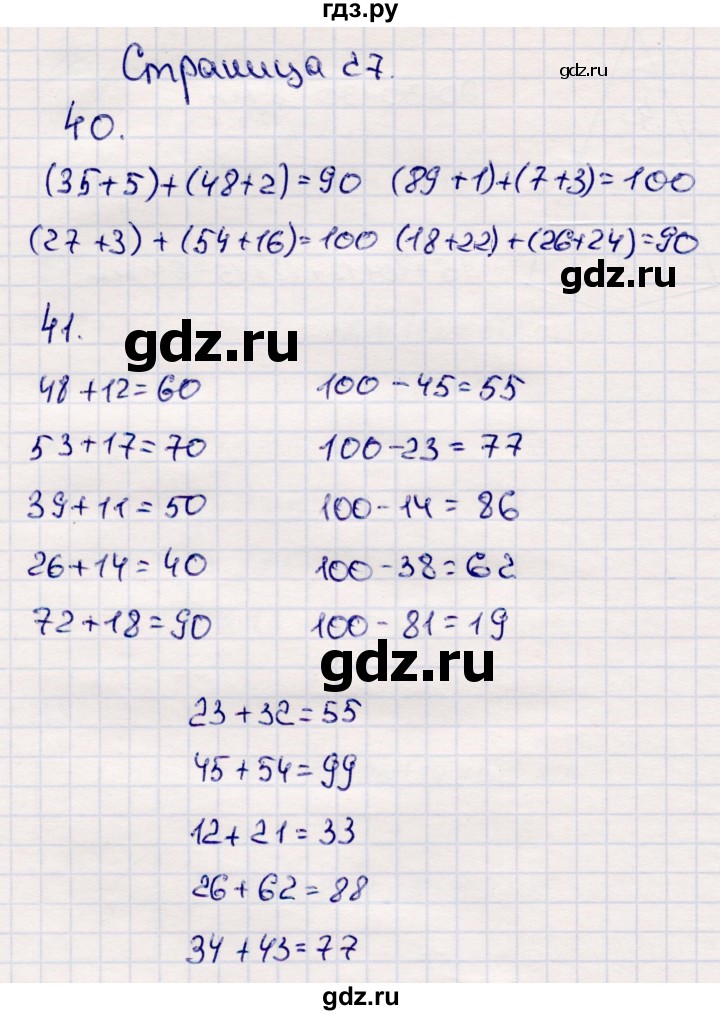 гдз.ру
Страница 27.
gdz.ru
40.
(35+5)+(48+2)=90 (89+1)+(7+3)=100
(27+3)+(54+16)=100 (18+22)+(26+24)=90
gdz.ru
41.
gdz.ru
48+12=60 100-45=55
53+17=70 100-23=77
39+11=50 100-14=86
26+14=40 100-38=62
72+18=90 100-81=19
gdz.ru
23+32=55
45+54=99
12+21=33
26+62=88
34+43=77
gdz.ru